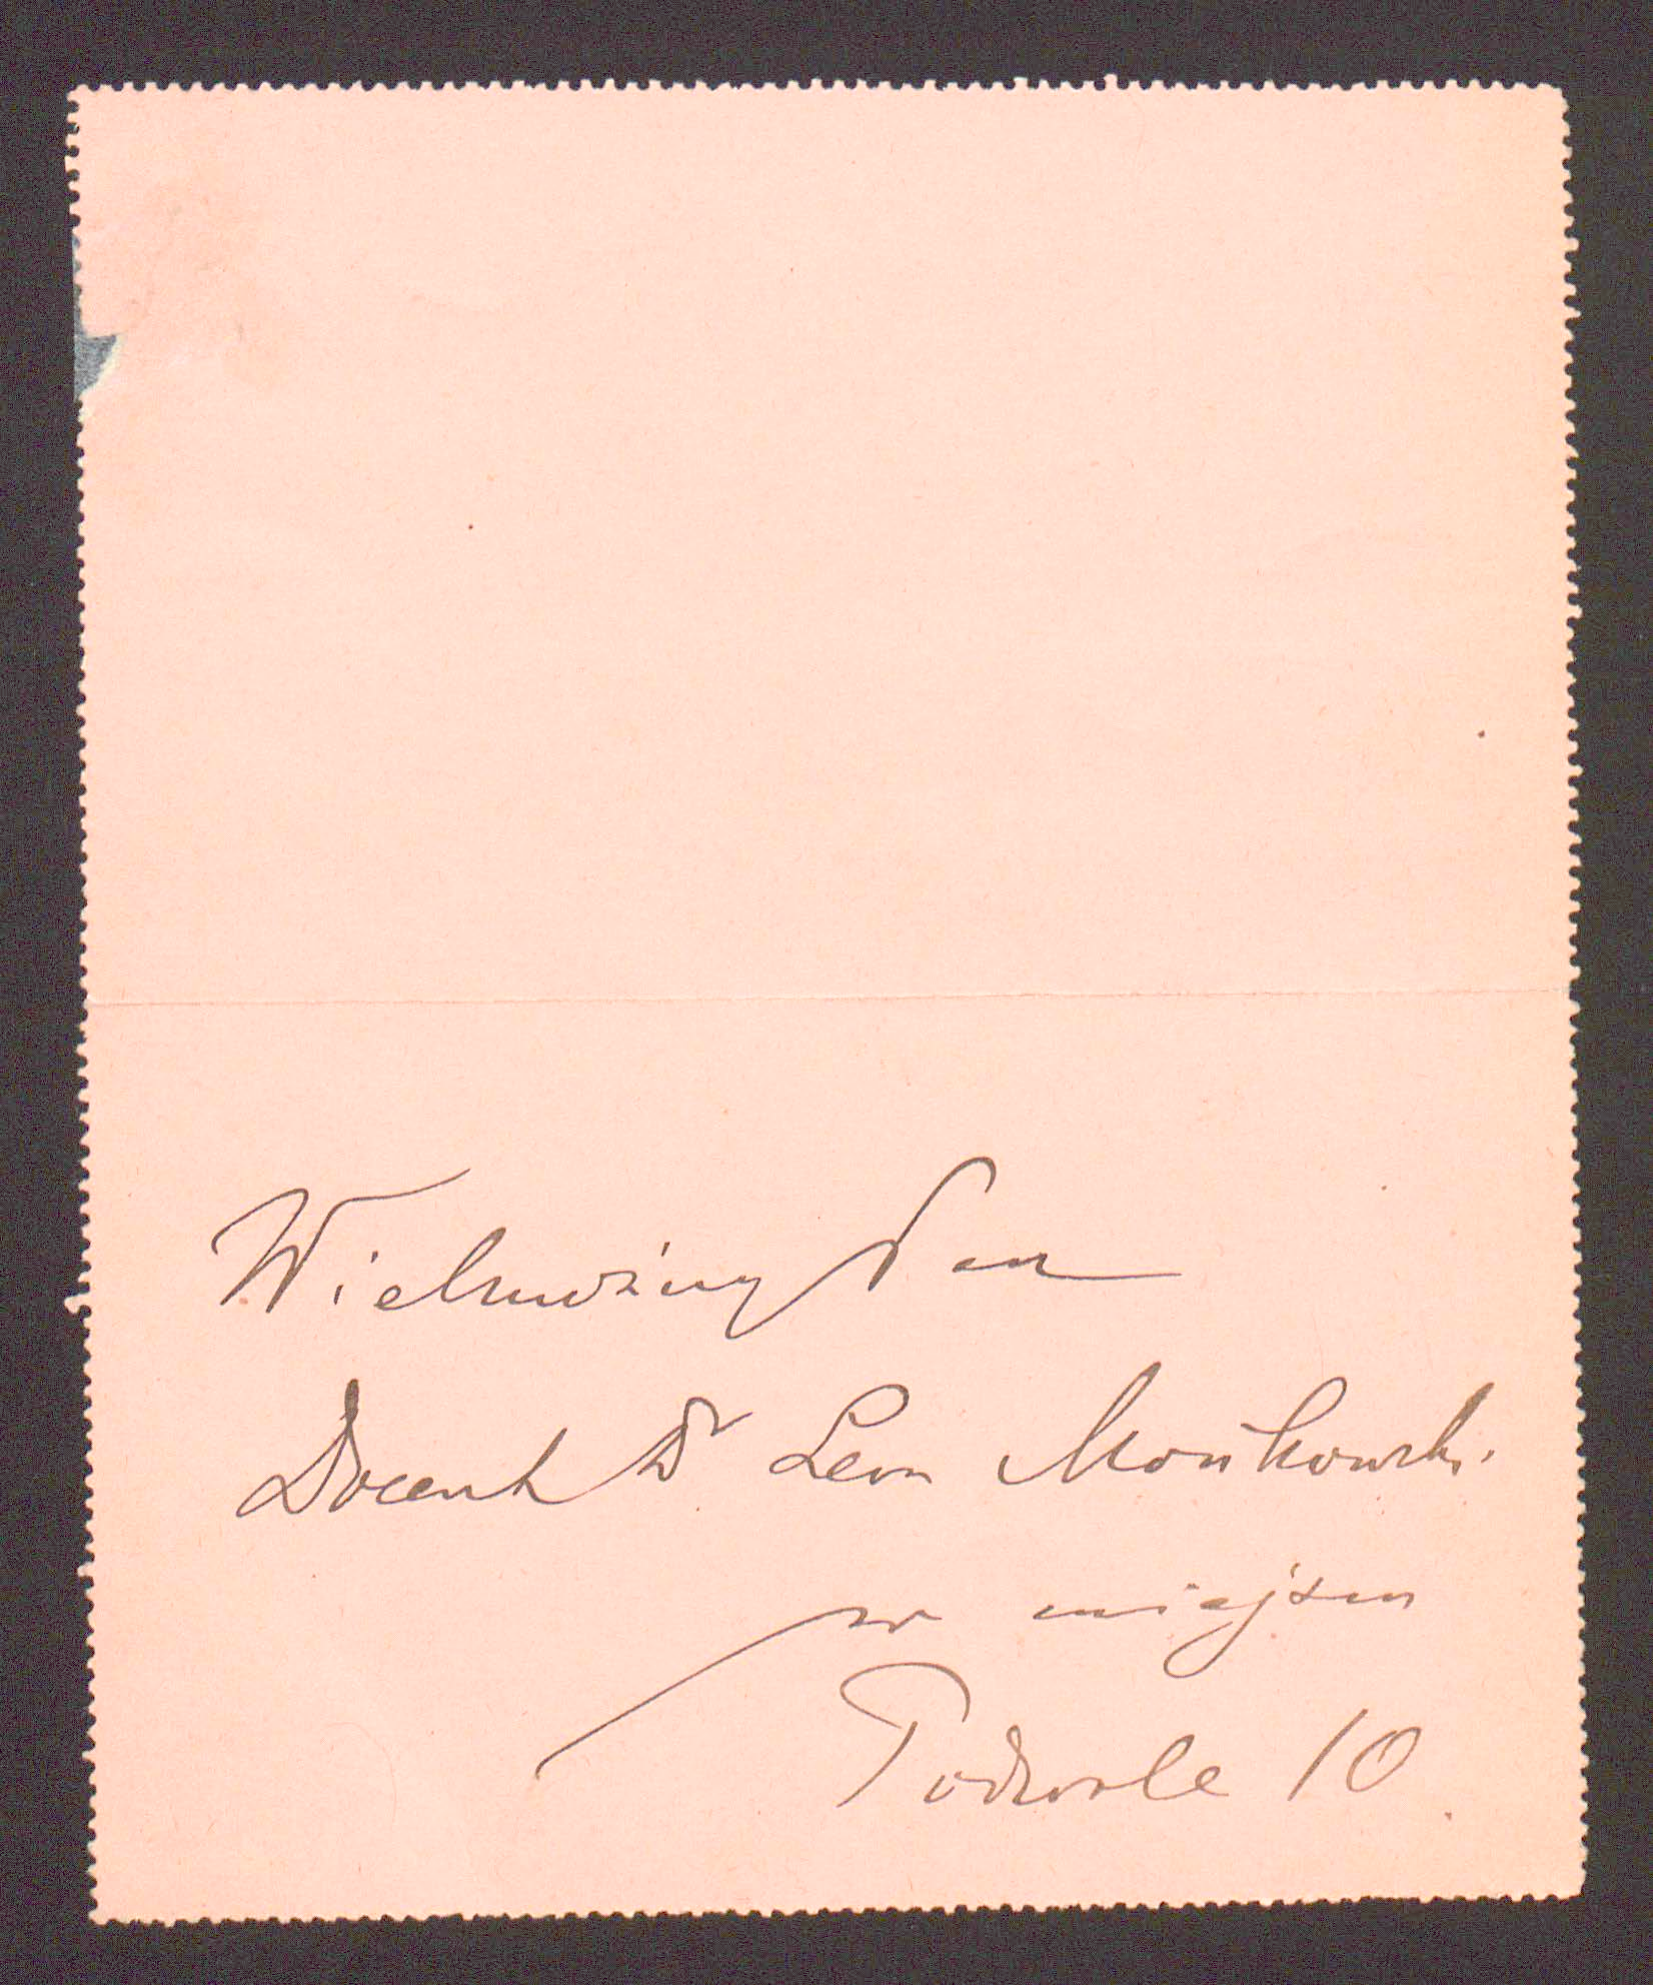 Wielmożny Pan
Docent Dr Leon Mańkowski
w miejscu
Podwale 10